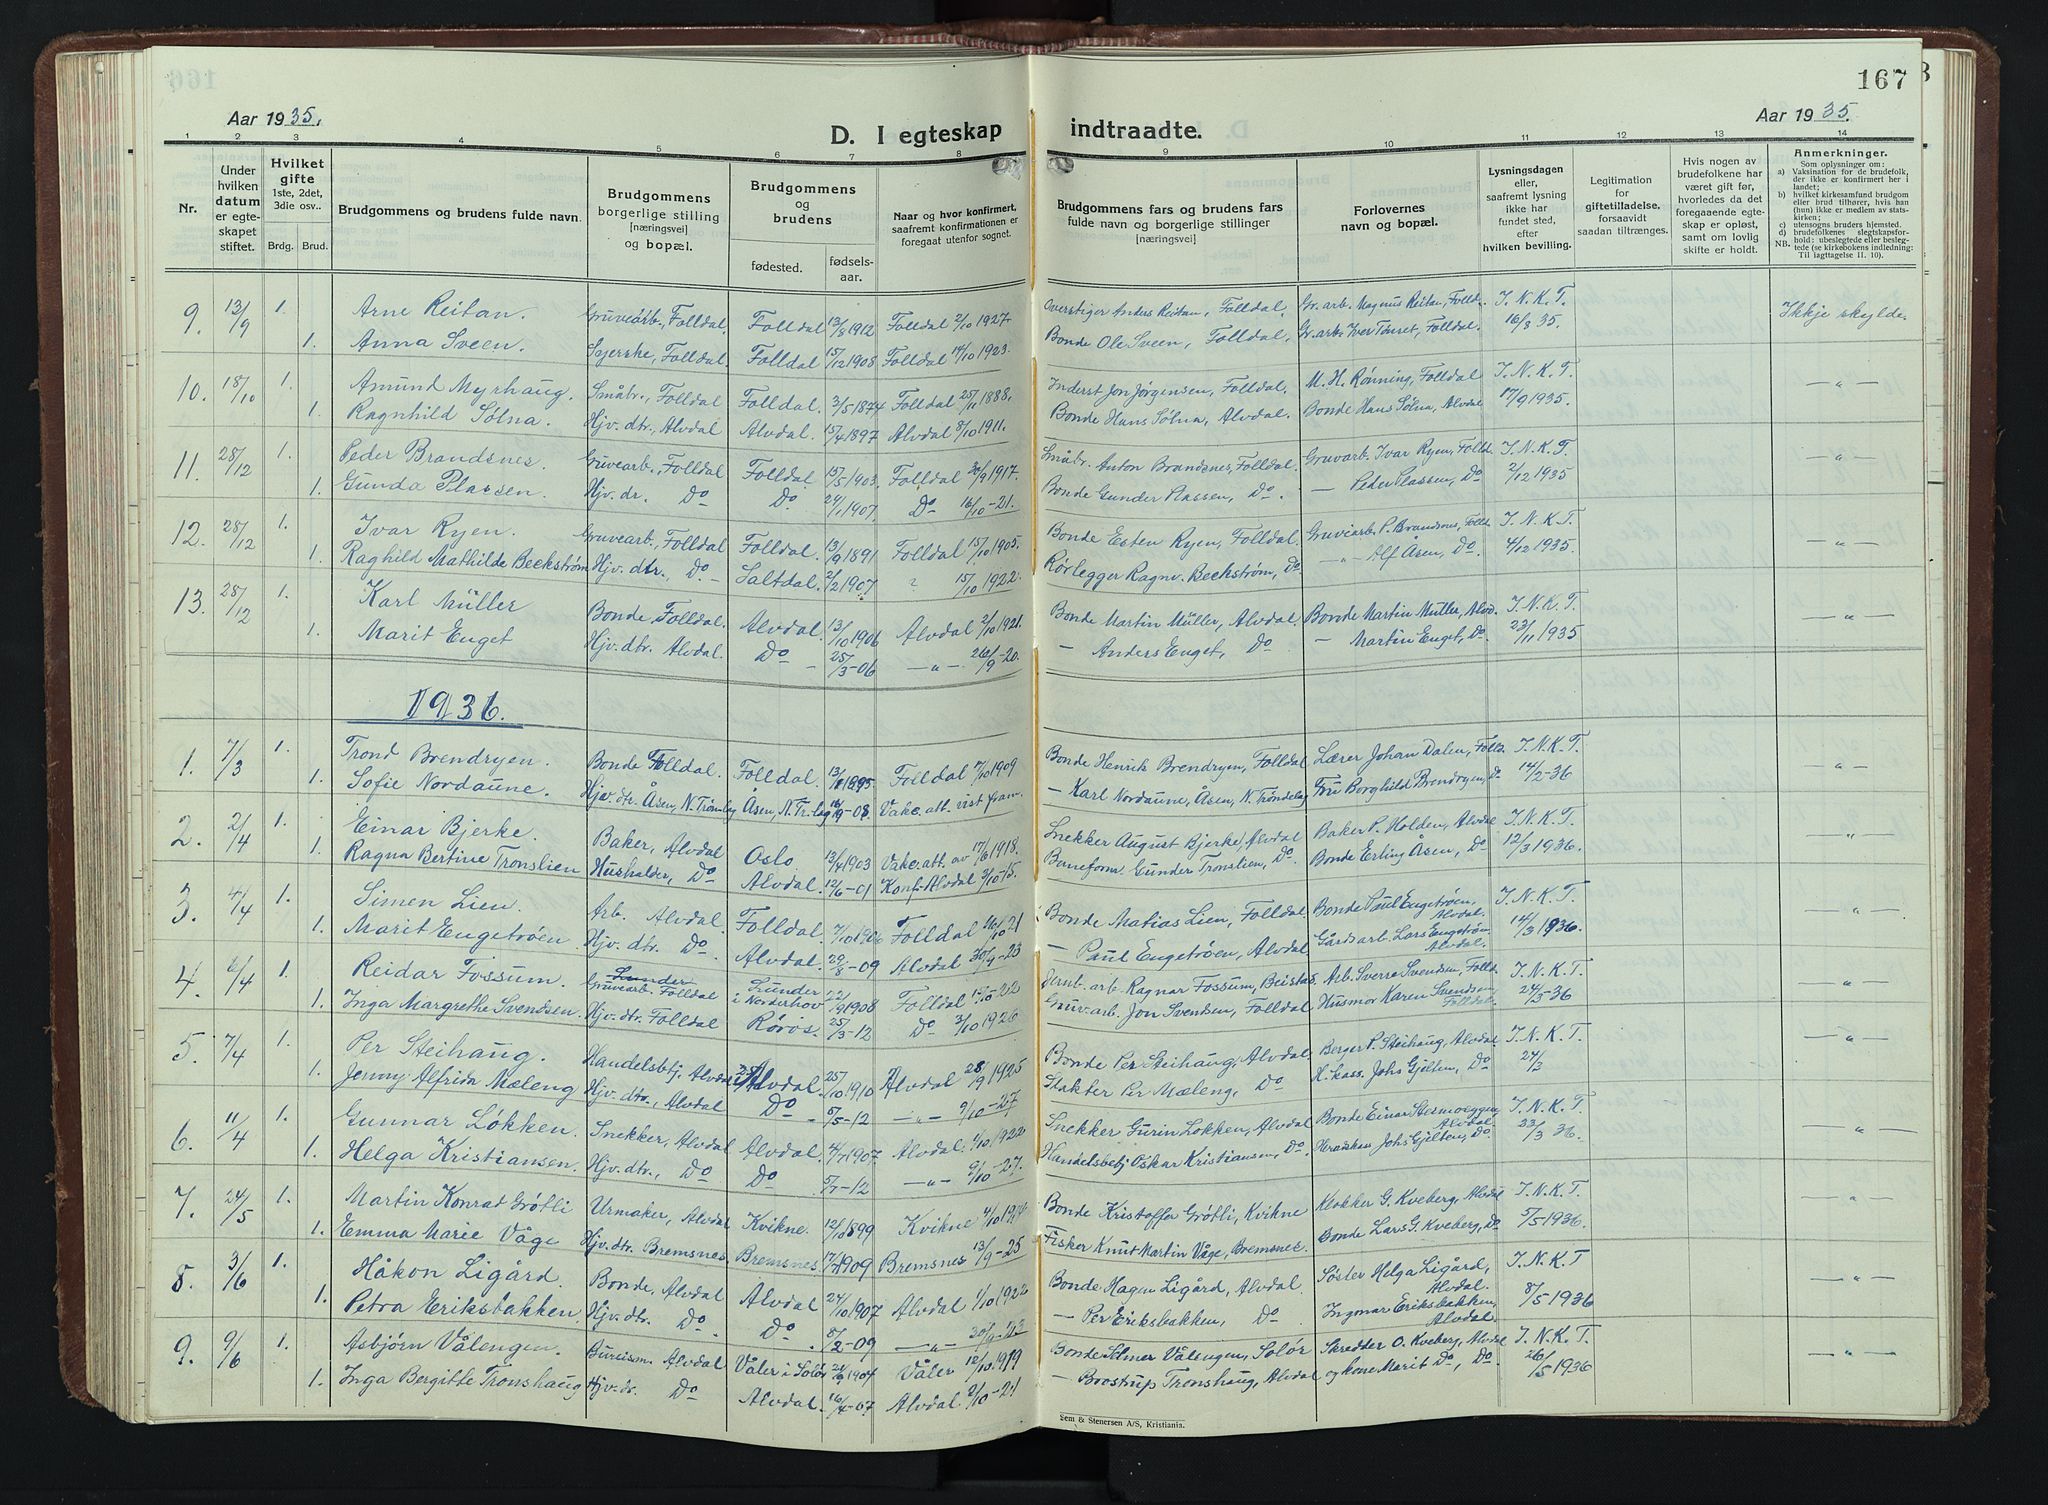 166
167
Aar 1935.
D. I egteskap
indtraadte.
Aar 1935.
1 2 3 4 5 6 7 8 9 10 11 12 13 14
Nr.
Under hvilken datum er egteskapet stiftet.
Hvilket gifte 1ste, 2det, 3die osv..
Brdg. Brud.
Brudgommens og brudens fulde navn.
Brudgommens borgerlige stilling [næringsvei] og bopæl.
Brudgommens og brudens
fødested. fødselsaar.
Naar og hvor konfirmert, saafremt konfirmationen er foregaat utenfor sognet.
Brudgommens fars og brudens fars fulde navn og borgerlige stillinger [næringsvei]
Forlovernes navn og bopæl.
Lysningsdagen eller, saafremt lysning ikke har fundet sted, efter hvilken bevilling.
Legitimation for giftetilladelse. forsaavidt saadan tiltrænges.
Hvis nogen av brudefolkene har været gift før, hvorledes da det foregaaende egteskap er opløst, samt om lovlig skifte er holdt.
Anmerkninger.
Som oplysninger om:
a) Vaksination fra de brudefolk, der ikke er konfirmert her i landet;
b) hvilket kirkesamfund brudgom eller brud tilhører, hvis han (hun) ikke er medlem av statskirken;
c) utensogns bruders hjemsted.
d) brudefolkenes slegtskapsforhold: ubeslegtede eller beslegtede (se kirkebokens indledning: Til iagttagelse II. 10).
NB.
9. 13/9 1. Arne Reitan. Gruvearb., Folldal, Folldal 13/8 1912 Folldal 2/10 1927. Overstiger Anders Reitan, Folldal, Gr. arb. Magnus Reitan, Folld. I. N. K. T. Ikkje skylde.
1. Anna Sveen. Syerske, Folldal Folldal 15/12 1908 Folldal 14/10 1923. Bonde Ole Sveen, Folldal, Gr. arb. Iver Tørset, Folldal. 16/8 35.
10. 18/10 1. Amund Myrhaug. Småbr., Folldal Folldal. 3/5 1874 Folldal 25/11 1888. Inderst Jon Jørgensen, Folldal. M. H. Rønning, Folldal I. N. K. T. — " —
1. Ragnhild Sølna. Hjv. dtr., Alvdal Alvdal. 15/4 1897 Alvdal 8/10 1911. Bonde Hans Sølna, Alvdal. Bonde Hans Sølna, Alvdal 17/9 1935.
11. 28/12 1. Peder Brandsnes. Gruvearb., Folldal Folldal. 15/5 1903. Folldal 30/9 1917. Småbr. Anton Brandsnes, Folldal. Gruvarb. Ivar Ryen, Folld. I. N. K. T. — " —
1. Gunda Plassen. Hjv. dr. Do Do. 24/1 1907. Do 16/10 -21. Bonde Gunder Plassen, Do. — Peder Plassen, Do 2/12 1935
12. 28/12 1. Ivar Ryen. Gruvearb., Folldal Folldal. 13/9 1891 Folldal 15/10 1905. Bonde Esten Ryen, Folldal. Gruvearb. P. Brandsnes, Folld. I. N. K. T. — " —
1. Raghild Mathilde Beckstrøm Hjv. dtr., Do. — Saltdal 2/2 1907 ? 15/10 1922. Rørlegger Ragnv. Beckstrøm, Do — " — Olf Åsen, Do. 4/12 1935.
13. 28/12 1. Karl Müller Bonde, Folldal. Alvdal 13/10 1906 Alvdal 2/10 1921. Bonde Martin Müller, Alvdal. Bonde Martin Müller, Alvd. I. N. K. T. — " —
1. Marit Enget Hjv. dtr. Alvdal. Do — 25/3 -06 — " — 26/9 -20. — Anders Enget, Do — Martin Enget, Do. 23/11 1935
1936.
1. 7/3 1. Trond Brendryen. Bonde Folldal. Folldal. 1895 Folldal 7/10 1909 Bonde Henrik Brendryen, Folldal Lærer Johan Dalen, Folld. I. N. K. T. — " —
1. Sofie Nordaune. Hjv. dtr. Åsen, N. Trøndlag Åsen, N. Tr. lag -08. Vaks. att. vist fram. — Karl Nordaune, Åsen, N. Trøndelag Fru Borghild Brendryen, Do 14/2 -36
2. 2/4 1. Einar Bjerke. Baker, Alvdal Oslo 13/4 1903 Vaks. att. av 17/6 1918. Snekker August Bjerke, Alvdal Baker P. Holden, Alvdal I. N. K. T. — " —
1. Ragna Bertine Tronslien Husholder, Do Alvdal. 12/6 -01 Konf. Alvdal 3/10 -15. Baneform. Gunder Tronslien, Do. Bonde Erling Åsen, Do 12/3 1936.
3. 4/4 1. Simen Lien. Arb. Alvdal. Folldal. 7/10 1906 Folldal 16/10 21 Bonde Matias Lien, Folldal. Bonde Paul Engetrøen, Alvdal. I. N. K. T. — " —
1. Marit Engetrøen Hjv. dtr. Do. Alvdal. 29/8 -09 Alvdal 30/9 -23 — Paul Engetrøen, Alvdal Gårdsarb. Lars Engetrøen, Alvdal. 14/3 1936.
4. 6/4 1. Reidar Fossum. Gruvearb. Folldal i Norderhov 22/9 1908 Folldal -22 Jernb. arb. Ragnar Fossum, Beistad. Arb. Sverre Svendsen, Folld. I. N. K. T. — " —
1. Inga Margrethe Svendsen. Hjv. dtr. Folldal Røros. 25/3 -12 Do 3/10 1926 Gruv. arb. Jon Svendsen, Folldal Husmor Karen Svendsen, Folldal. 24/3 36
5. 7/4 1. Per Steihaug. Handelsbetj. Alvdal Alvdal. 25/10 1910 Alvdal 28/9 1925 Bonde Per Steihaug, Alvdal. Berger P. Steihaug, Alvdal I. N. K. T. — " —
1. Jenny Alfrida Mæleng Hjv. dtr., Alvdal Do — 5/5 -12 — " — 9/10 -27 Slakter Per Mæleng, Do H. kass. Johs Gjelten, Do 24/3
6. 11/4 1. Gunnar Løkken. Snekker, Alvdal Alvdal. 4/7 1907. Alvdal. 1/10 1922 Snekker Gurin Løkken, Alvdal Bonde Einar Steimoeggen, Alvdal. I. N. K. T. — " —
1. Helga Kristiansen. Hjv. dtr., Do Do . 5/7 -12 — " — 9/10 -27. Handelsbetj. Oskar Kristiansen, Do. Johs Gjelten, Do 23/3 36.
7. 24/5 1. Martin Konrad Grøtli Urmaker, Alvdal Kvikne. 12/10 1899 Kvikne 4/10 1914 Bonde Kristoffer Grøtli, Kvikne Klokker G. Kveberg, Alvdal I. N. K. T. — " —
1. Emma Marie Våge Hjv. dtr. Bremsnes Bremsnes 1909 Bremsnes 13/9 -25 Fisker Knut Martin Våge, Bremsnes. Bonde Lars G. Kveberg, Do 5/5 1936.
8. 3/6 1. Håkon Ligård. Bonde, Alvdal Alvdal 24/10 1907 Alvdal 1/10 1922 Bonde Hagen Ligård, Alvdal Søster Helga Ligård, Alvdal. I. N. K. T — " —
1. Petra Eriksbakken. Hjv. dtr. Do . Do. . 5/2 -09 — " — 30/9 -23 — Per Eriksbakken, Do Ingmar Eriksbakken, Alvdal. 8/5 1936
9. 9/6 1. Asbjørn Vålengen. Bureism. Alvdal Våler i Solør 1904 Våler 12/10 1919 Bonde Elmer Vålengen, Solør Skredder O. Kveberg, Alvdal I. N. K. T. — " —
1. Inga Bergitte Tronshaug Hjv. dr. Do Alvdal. 16/4 -07 Alvdal 2/10 -21 — Boostrup Tronshaug, Alvdal og kone Marit Do, Do. 26/5 1936
Sem & Stenersen A/S, Kristiania.